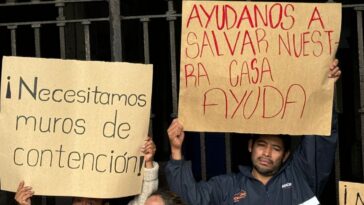 ¡Necesitamos
muros de
contención!
AYUDANOS A
SALVAR NUEST
RA CASA
AYUDA